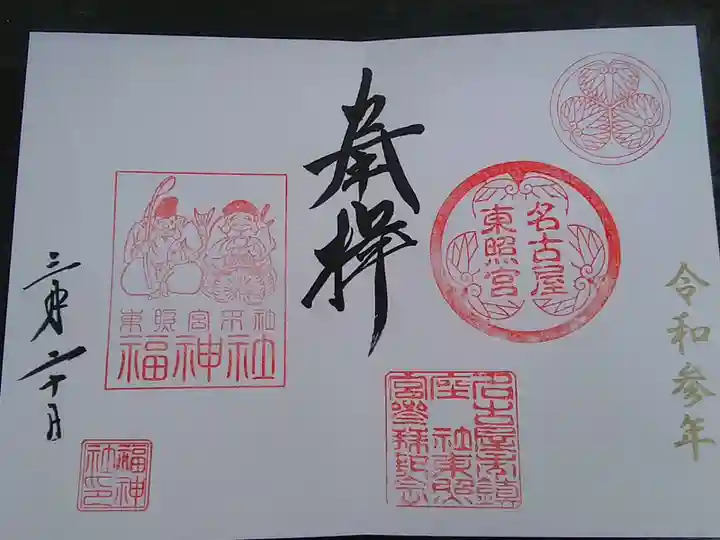 令和参年
名古屋
東照宮
名古屋御鎮
座 社東照
宮参拝記念
奉拝
東照宮末社
福神社
三月二十日
福神
社印